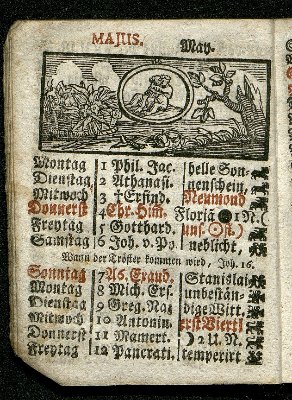 MAJUS. May.
Montag 1 Phil. Jac. helle Son-
Dienstag 2 Athanasi. nenschein,
Mitwoch 3 †Erfind. Neumond
Donnerst 4 Chr. Him. Floriā 1 N.
Freytag 5 Gotthard. unf.
Samstag 6 Joh. v. Po. neblicht,
Wann der Tröster kommen wird, Joh. 16.
Sonntag 7 A6. Exaud. Stanislai
Montag 8 Mich. Ers. unbestän-
Dienstag 9 Greg. Naz dige Witt.
Mitwoch 10 Antonin. erst Viertl
Donnerst 11 Mamert. ☽ 2 U. N.
Freytag 12 Pancrati. temperirt